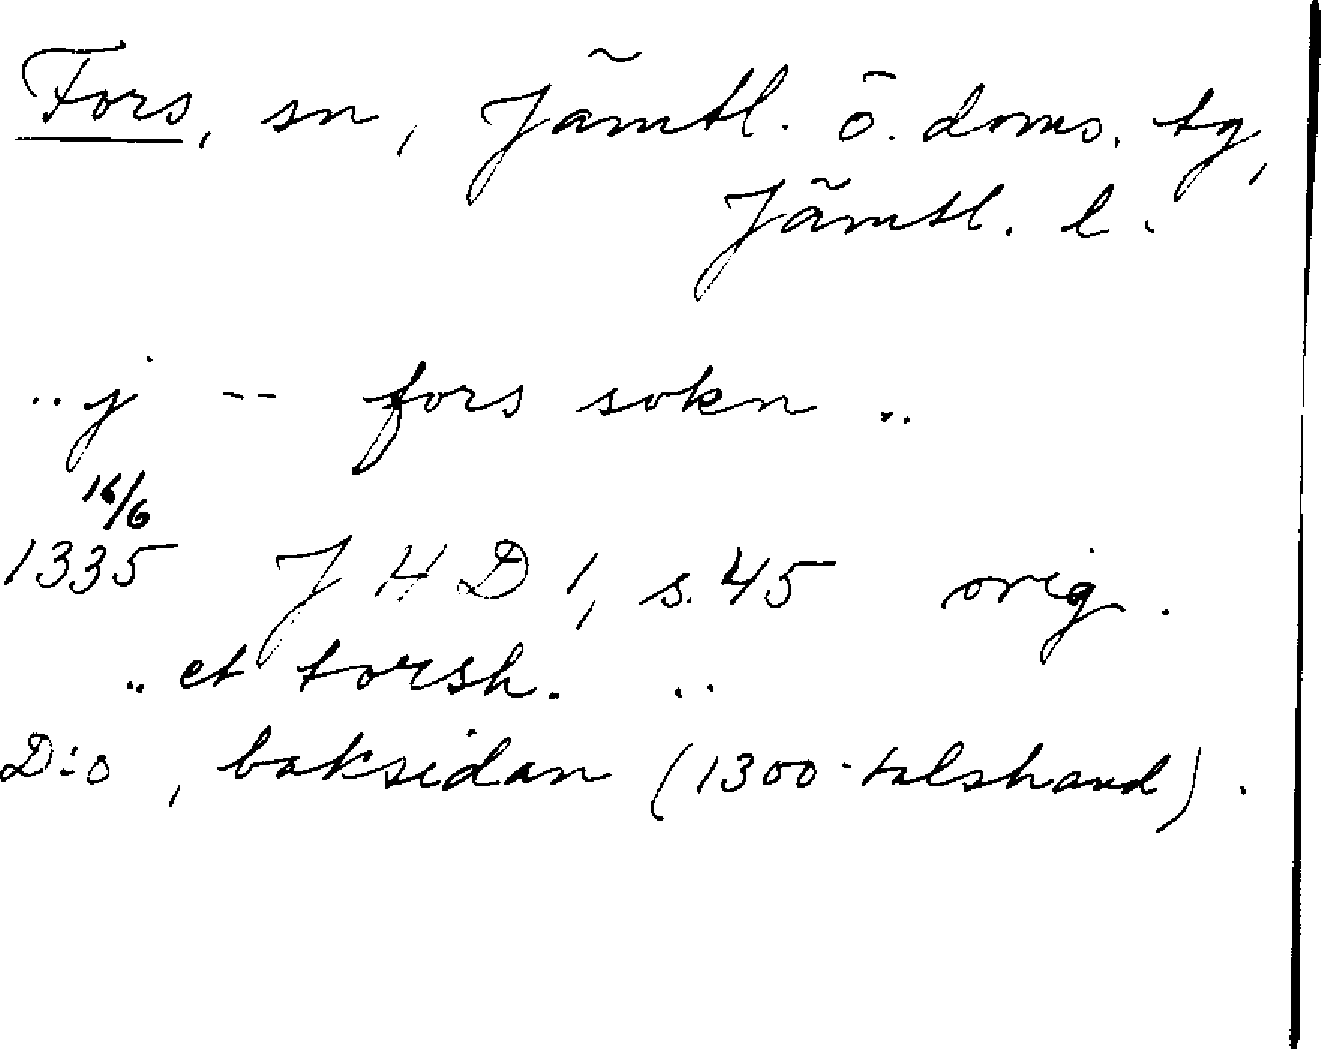 Fors, sn, Jämtl. ö. doms. tg,
Jämtl. l.
.. j -- fors sokn ..
16/6
1335 JHD 1, s. 45 orig.
.. et torsh. ..
D:o, baksidan (1300-talshand).